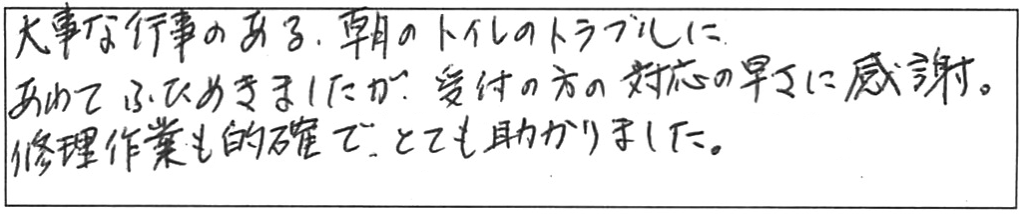 大事な行事のある、朝のトイレのトラブルに
あわてふためきましたが、受付の方の対応の早さに感謝。
修理作業も的確で、とても助かりました。